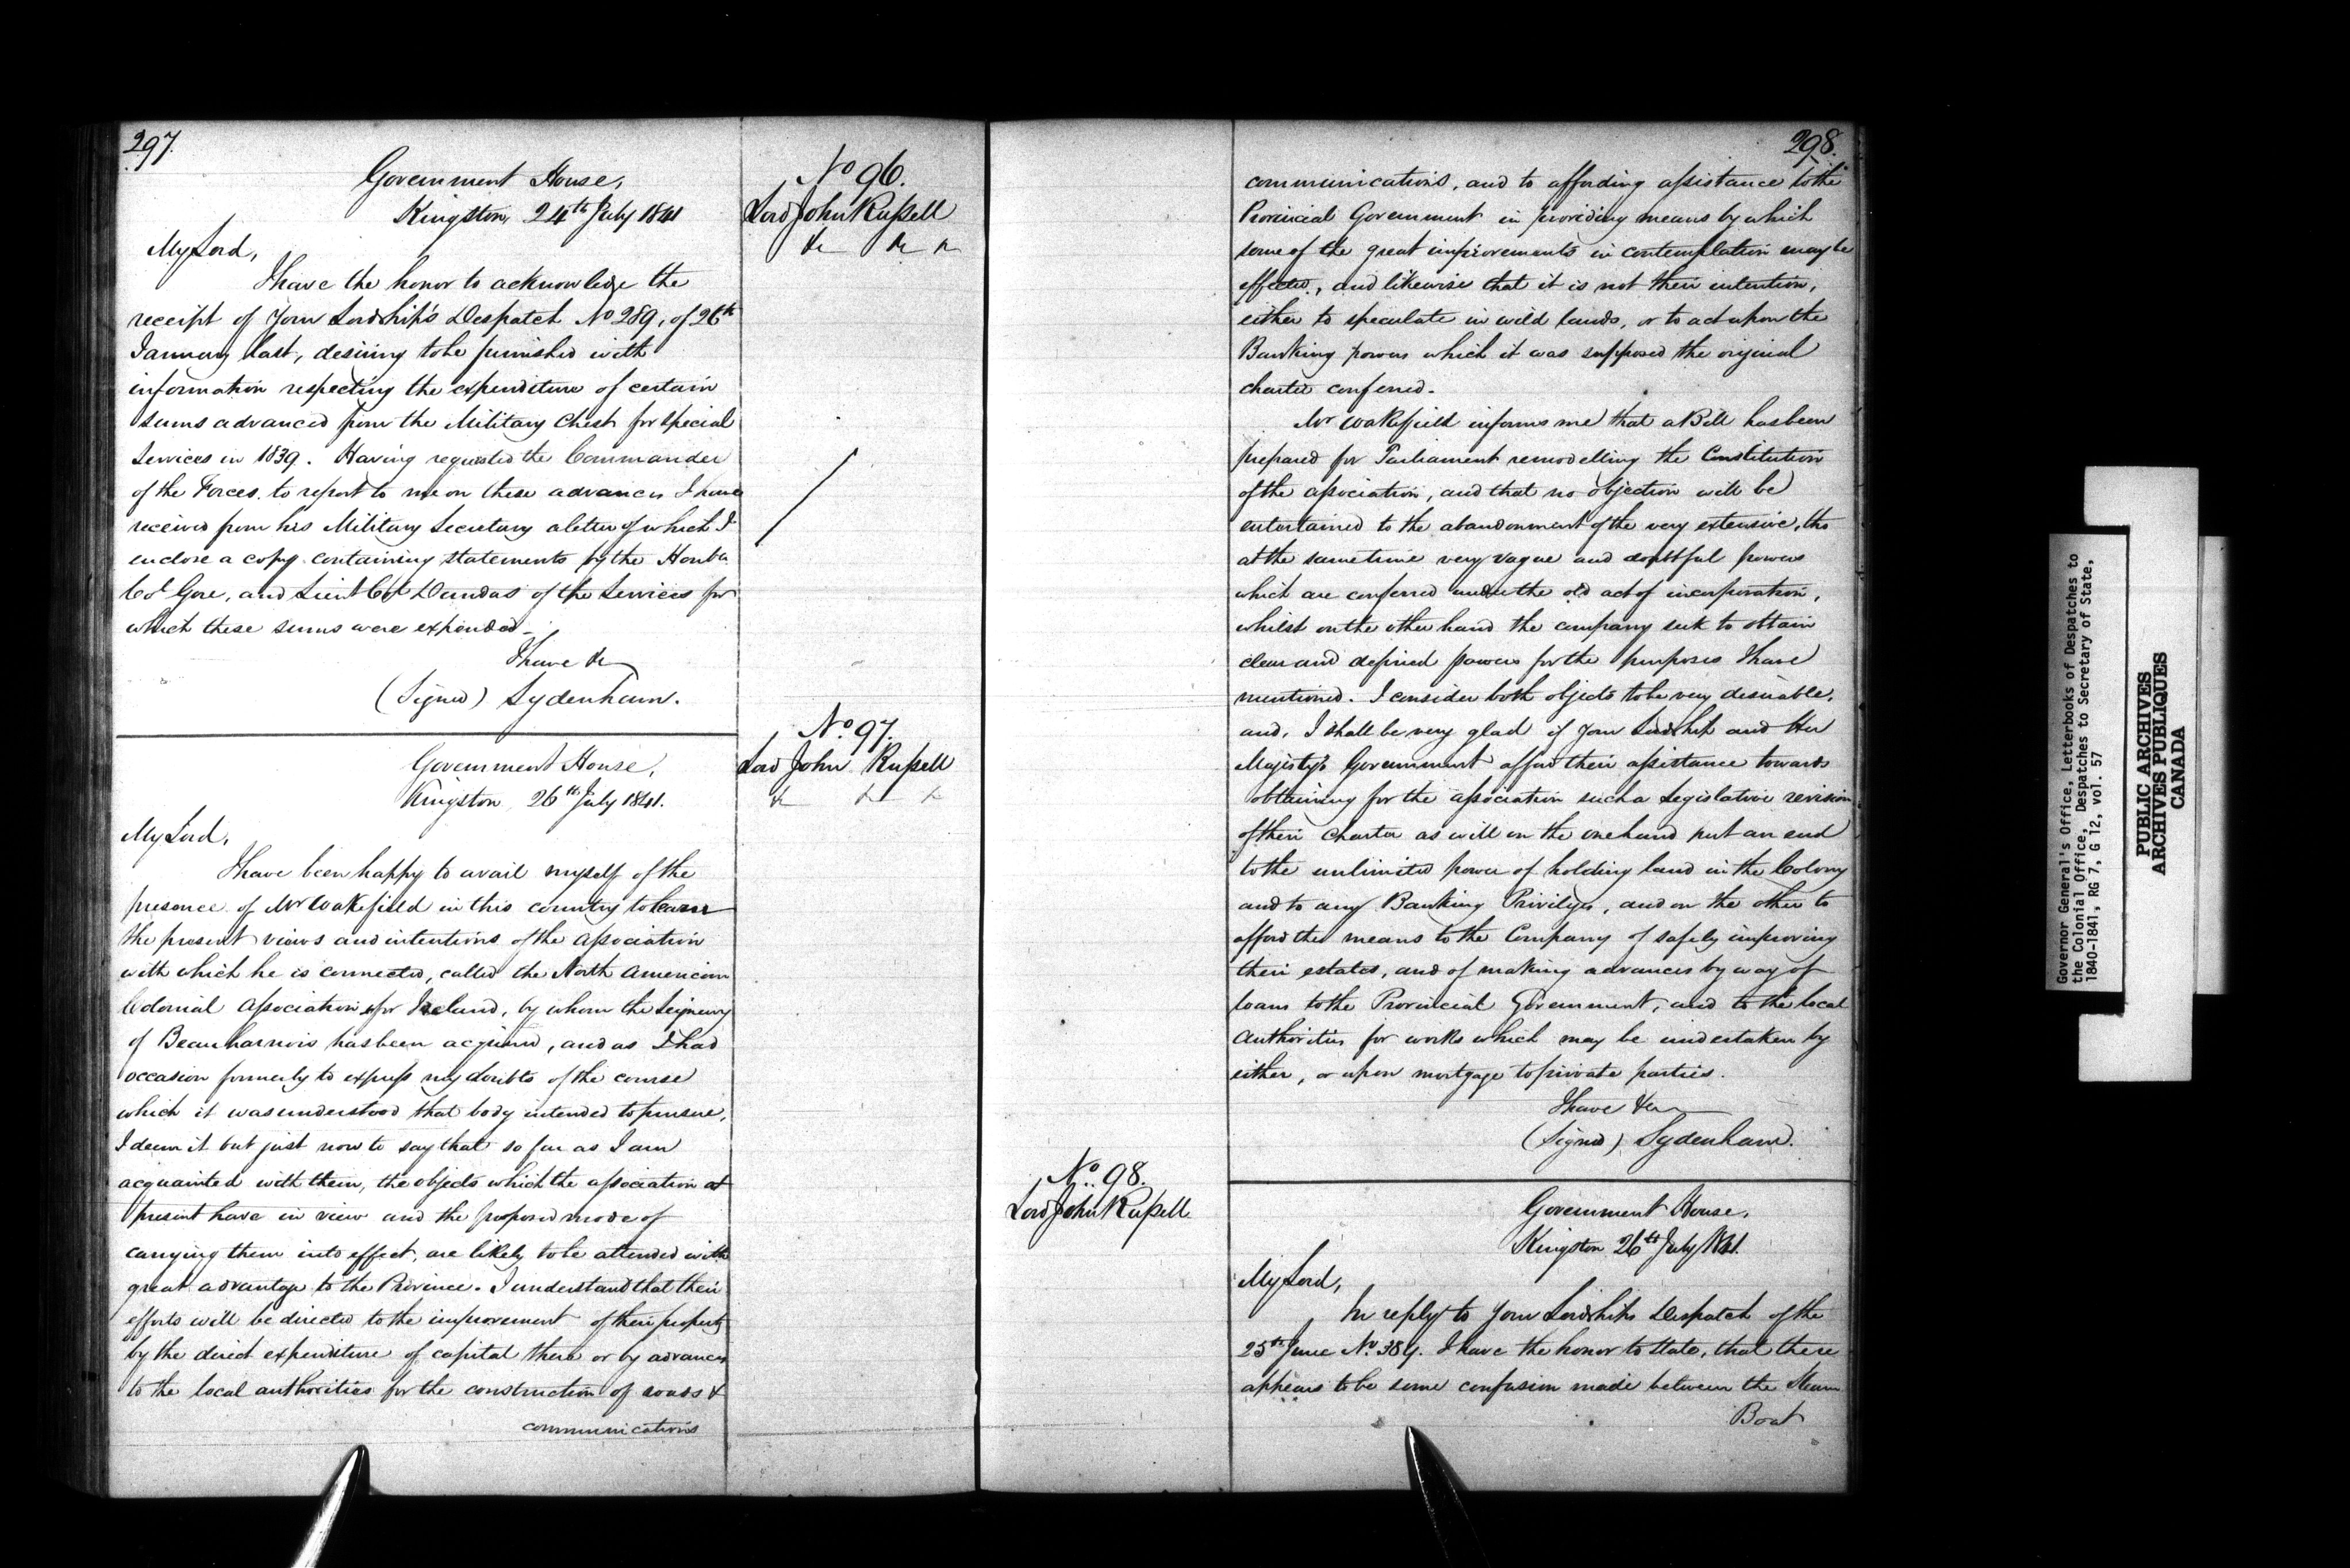 297.
Government House,
Kingston, 24th July 1841
My Lord,
I have the honor to acknowledge the
receipt of Your Lordship's Despatch No 289, of 26th
January last, desiring to be furnished with
information respecting the expenditure of certain
sums advanced from the Military Chest for special
Services in 1839. Having requested the Commander
of the Forces, to report to me on these advances I have
received from his Military Secretary a letter of which I
enclose a copy containing statements by the Honble
Col Gore, and Lieut Col Dundas of the Services for
which these sums were expended.
I have &c
(Signed) Sydenham.
No 96.
Lord John Russell
&c &c &c
Government House,
Kingston 26th July 1841.
My Lord,
I have been happy to avail myself of the
presence of Mr Wakefield in this country to learn
the present views and intentions of the Association
with which he is connected, called the North American
Colonial Association for Ireland, by whom the Seigneury
of Beauharnois has been acquired, and as I had
occasion formerly to express my doubts of the course
which it was understood that body intended to pursue,
I deem it but just now to say that so far as I am
acquainted with them, the objects which the association at
present have in view and the proposed mode of
carrying them into effect, are likely to be attended with
great advantage to the Province. I understand that their
efforts will be directed to the improvement of their property
by the direct expenditure of capital there or by advances
to the local authorities for the construction of roads &
communications
No. 97.
Lord John Russell
&c &c &c
298.
communications, and to affording assistance to the
Provincial Government in providing means by which
some of the great improvements in contemplation may be
effected, and likewise that it is not their intention,
either to speculate in wild lands, or to act upon the
Banking powers which it was supposed the original
charter conferred.
Mr Wakefield informs me that a Bill has been
prepared for Parliament remodelling the Constitution
of the association, and that no objection will be
entertained to the abandonment of the very extensive, tho
at the same time very vague and doubtful powers
which are conferred under the old act of incorporation,
whilst on the other hand the company seek to obtain
clear and defined powers for the purposes I have
mentioned. I consider both objects to be very desirable,
and, I shall be very glad if your Lordship and Her
Majesty's Government afford their assistance towards
obtaining for the association such a Legislative revision
of their Charter as will on the one hand put an end
to the unlimited power of holding land in the Colony
and to any Banking Privileges, and on the other to
afford the means to the Company of safely improving
their estates, and of making advances by way of
loans to the Provincial Government, and to the local
Authorities for works which may be undertaken by
either, or upon mortgage to private parties.
I have &c
(Signed) Sydenham.
No. 98.
Lord John Russell
Government House,
Kingston 26th July 1841.
My Lord,
In reply to Your Lordships Despatch of the
25th June No. 389. I have the honor to state, that there
appears to be some confusion made between the Steam
Boat
Governor General's Office, Letterbooks of Despatches to
the Colonial Office, Despatches to Secretary of State,
1840-1841, RG 7, G 12, vol. 57
PUBLIC ARCHIVES
ARCHIVES PUBLIQUES
CANADA